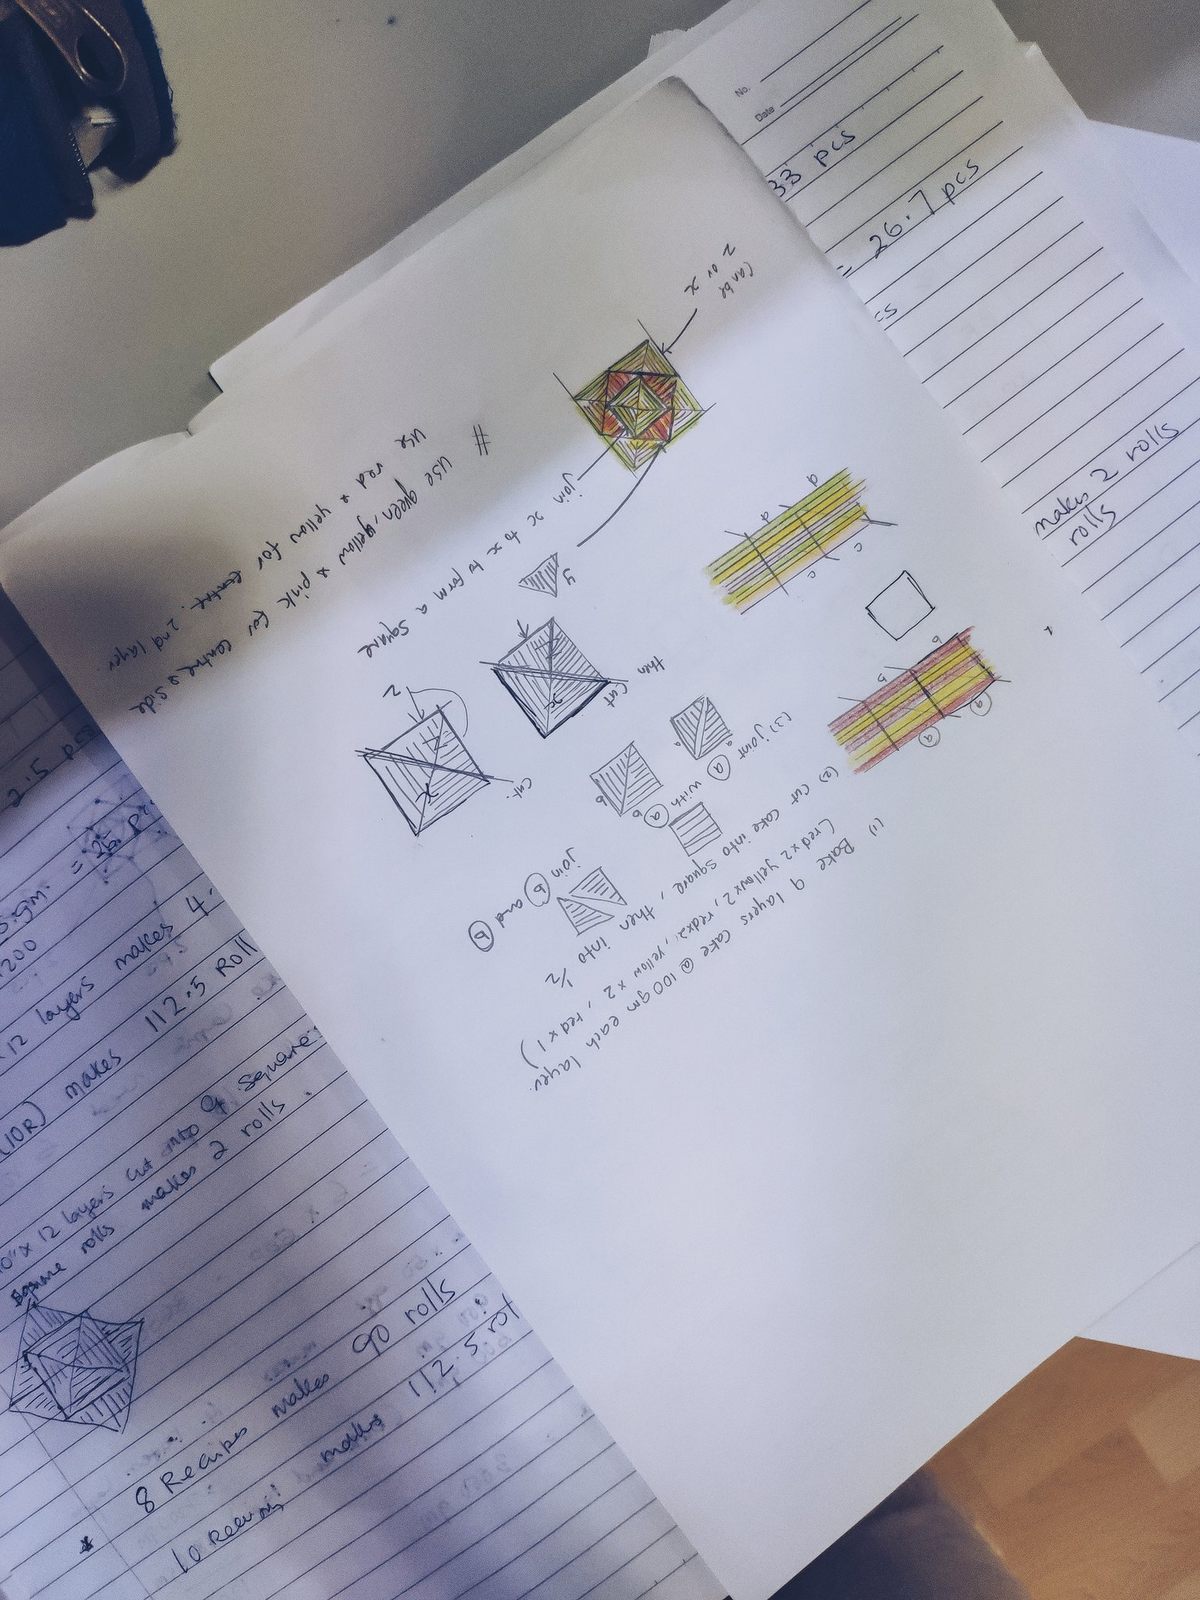 (1) Bake 9 layers cake @ 100gm each layer.
(red x 2 yellow x 2, red x 2, yellow x 2, red x 1)
(2) cut cake into square, then into 1/2
(3) joint a with a
join b and b
a
a
b
b
a
a
b
b
c
c
d
d
then
cut
cut.
x
z
x
z
y
join x to x to form a square
can be
z or x
# use green, yellow & pink for centre & side
use red & yellow for centre. 2nd layer.
No.
Date
33 pcs
= 26.7 pcs
cs
makes 2 rolls
rolls
200
x 12 layers makes 4.
(10R) makes 112.5 Roll
10" x 12 layers cut into square
rolls makes 2 rolls.
8 Recipes makes 90 rolls
10 makes 112.5